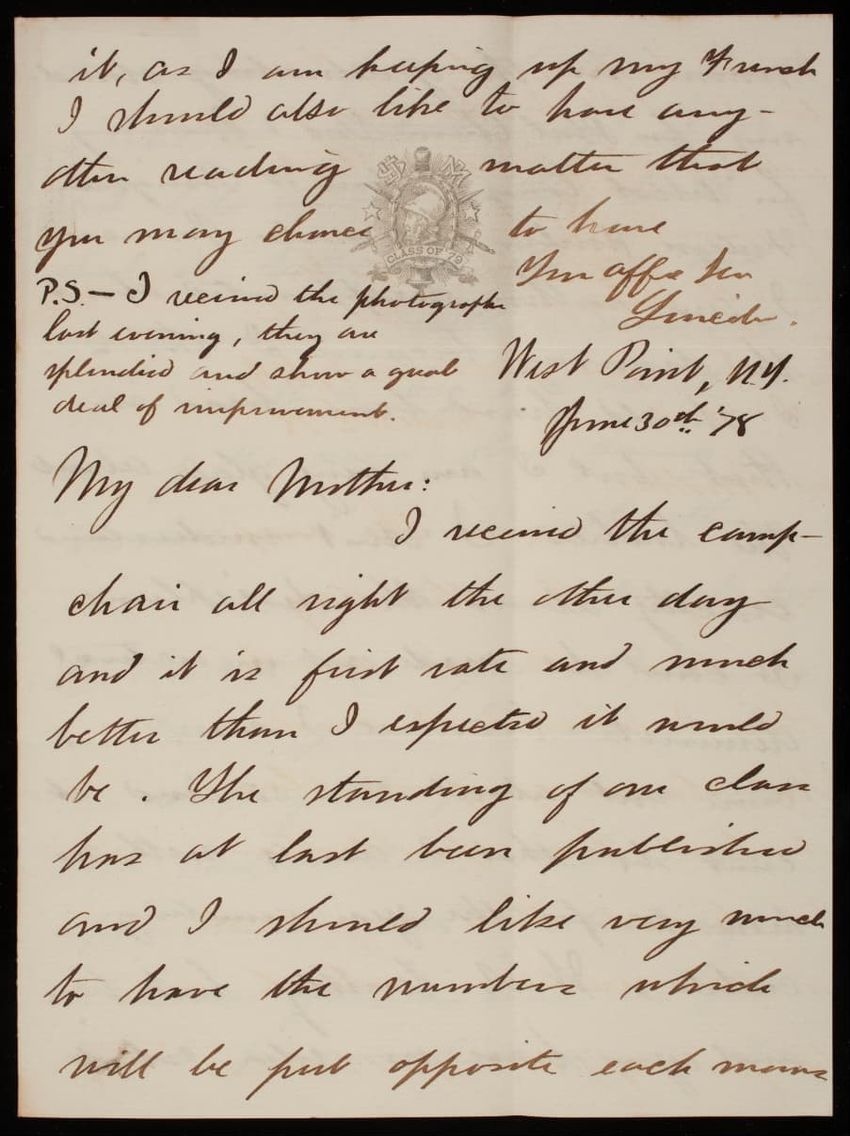 it, as I am keeping up my French
I should also like to have any-
other reading matter that
you may chance to have
Your affte Son
Lincoln.
P.S.— I received the photographs
last evening, they are
splendid and show a great
deal of improvement.
U S M A
CLASS OF '79
West Point, N.Y.
June 30th '78
My dear Mother:
I received the camp-
chair all right the other day
and it is first rate and much
better than I expected it would
be. The standing of our class
has at last been published
and I should like very much
to have the numbers which
will be put opposite each mans